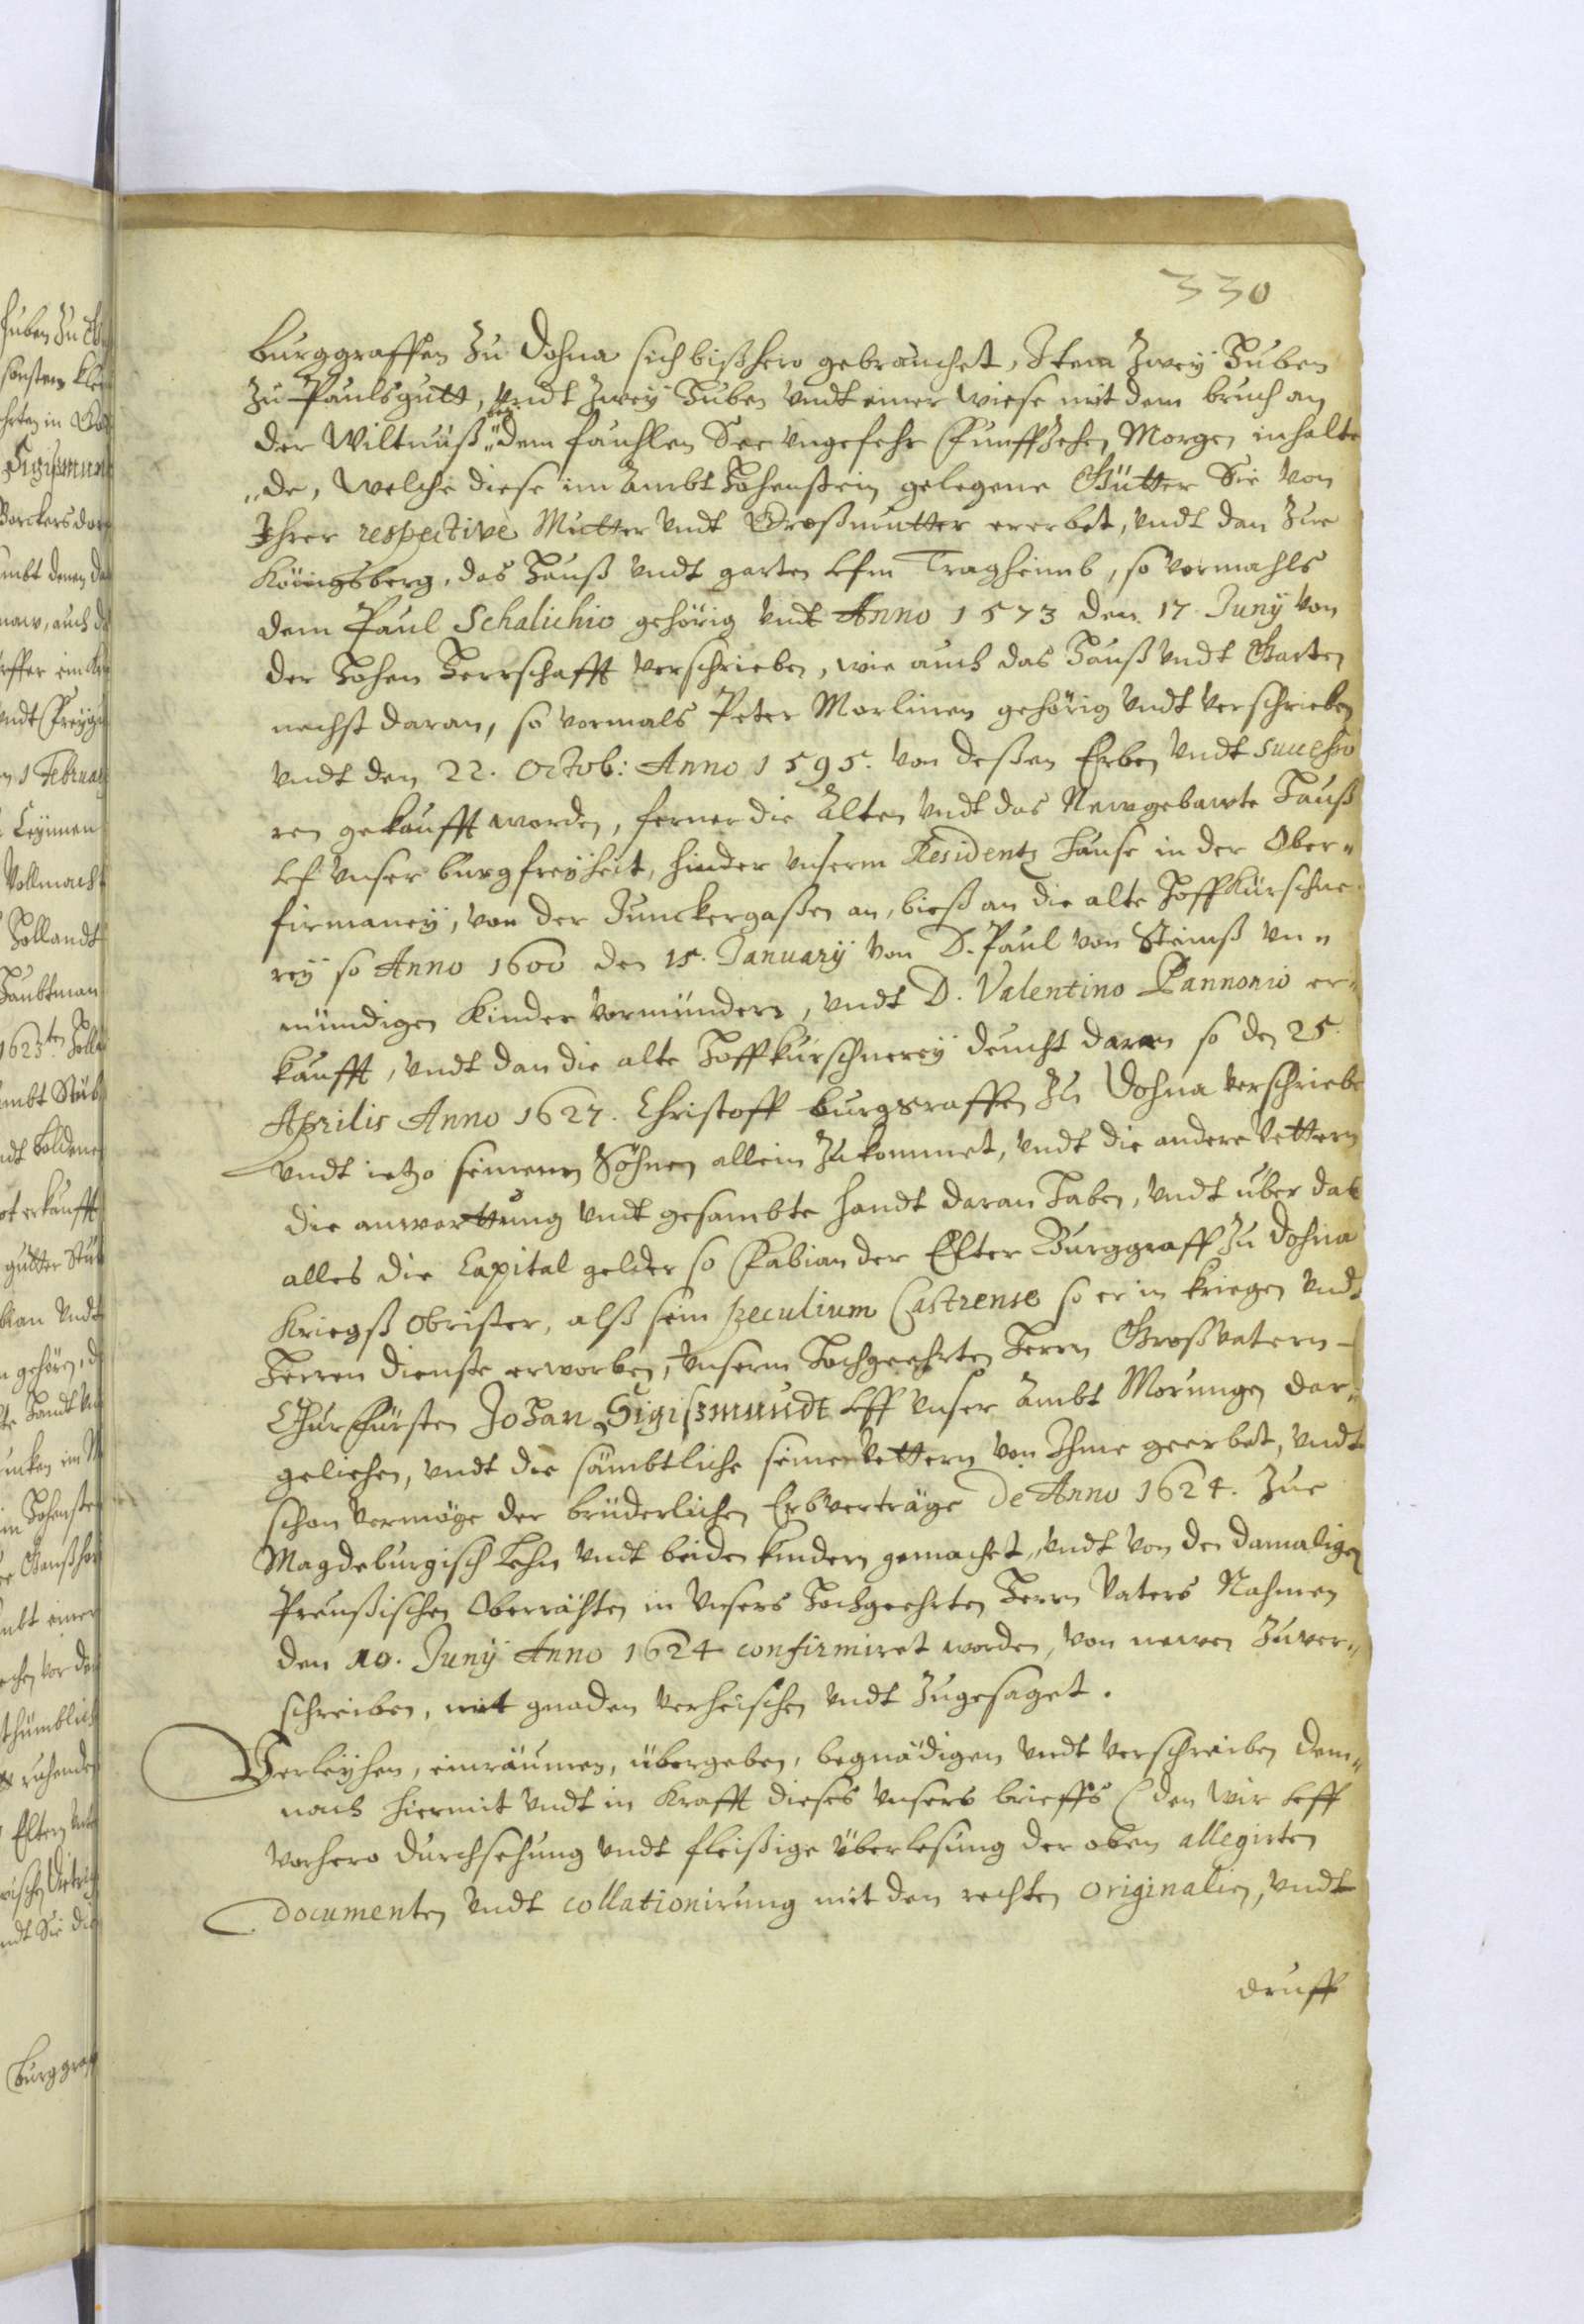 330
burggraffen zu Dohna sich bißhero gebrauchet, Item zwey Huben
zu Paulsgutt, vndt zwey Huben vndt einer wiese mit dem bruch an
der Wiltnuß dem faulen See vngefehr funffzehen Morgen inhalte
„de, welche diese im Ambt Hohenstein gelegene Gütter Sie von
Ihrer respective Mutter vndt Großmutter ererbet, vndt dan zue
Königsberg, das Hauß vndt garten vfm Tragheimb, so vormahls
dem Paul Schalichio gehörig vndt Anno 1573 den 17 Juny von
der Hohen Herrschafft verschrieben, wie auch das Hauß vndt Garten
nechst daran, so vormals Peter Morlinen gehörig vndt verschrieben
vndt den 22. Octob: Anno 1595. von deßen Erben vndt successo
ren gekaufft worden, ferner die Alten vndt das Newgebawte Hauß
vf vnser burgfreyheit, hinder vnserm Residentz Hause in der Ober„
firmaney, von der Junckergaßen an, bieß an die alte Hoffkürschne
rey so Anno 1600 den 15. January von D. Paul von Steinß vn„
mündigen Kinder Vormündern, vndt D. Valentino Pannonio er„
kaufft, vndt dan die alte Hoffkürschnerey deucht daran so den 25.
Aprilis Anno 1627. Christoff burggraffen zu Dohna verschriebe
vndt ietzo seinenn Söhnen allein zukommet, vndt die andere Vettern
die anwarttung vndt gesambte handt daran haben, vndt über das
alles die Capital gelder so Fabian der Elter Burggraff zu Dohna
Kriegß Obrister, alß sein peculium Castrense so er in kriegen vndt
Herren dienste erworben, vnserm Hochgeehrten Herrn Großvatern
Churfürsten Johan Sigißmundt vff vnser Ambt Morungen dar„
geliehen, vndt die sämbtliche seine Vettern von Ihme geerbet, vndt
schon vermöge der brüderlichen Erbverträge de Anno 1624. zue
Magdeburgisch Lehn vndt beiden kindern gemachet, vndt von den damaligen
Preußischen Oberrähten in vnsers Hochgeehrten Herrn Vaters Nahmen
den 10. Juny Anno 1624 confirmiret worden, von newen zuver„
schreiben, mit gnaden verheischen vndt zugesaget.
Verleyhen, einräumen, übergeben, begnädigen vndt verschreiben dem„
nach hiermit vndt in Krafft dieses vnsers brieffs (den wir vff
vorhero durchsehung vndt fleißige überlesung der oben allegirten
Documenten vndt collationirung mit den rechten originalien, vndt
druff